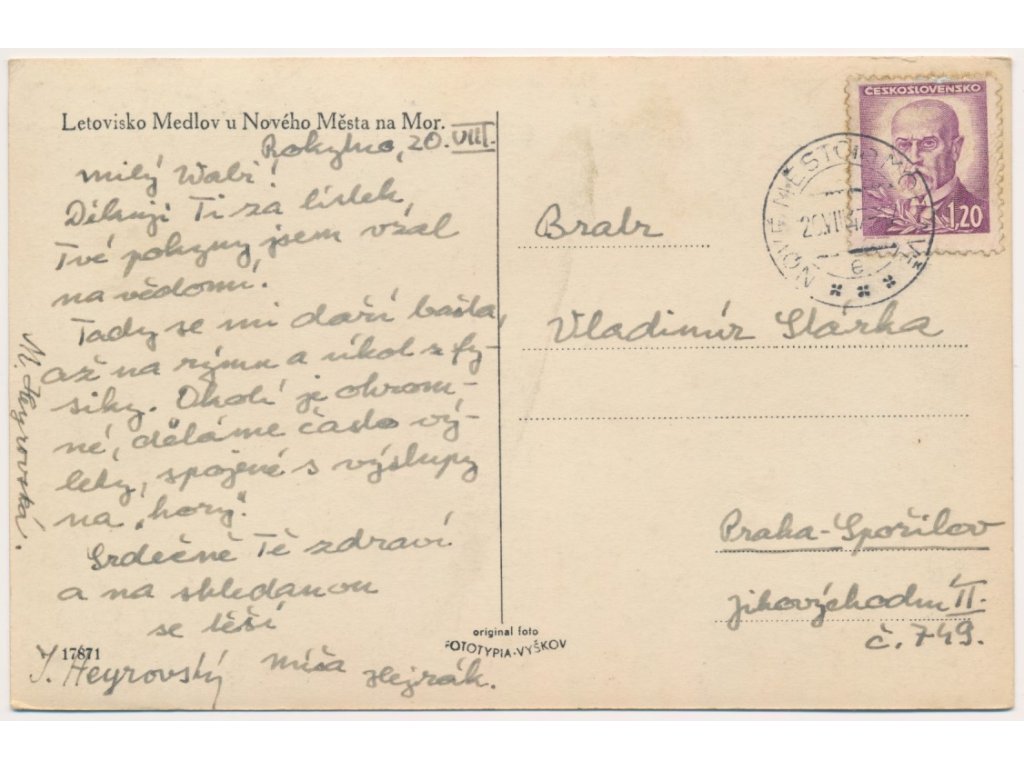 Letovisko Medlov u Nového Města na Mor.
Rokytno, 20. VIII.
milý Wabi!
Děkuji Ti za lístek,
Tvé pokyny jsem vzal
na vědomí.
Tady se mi daří bašta,
až na rýmu a úkol z fy-
siky. Okolí je ohrom-
né, děláme často vý-
lety, spojené s výstupy
na „hory".
Srdečně Tě zdraví
a na shledanou
se těší
míša Hejrák.
J. Heyrovský
M. Heyrovská.
17871
original foto
FOTOTYPIA-VYŠKOV
ČESKOSLOVENSKO
1·20
NOVÉ MĚSTO NA MOR
20.VIII
e
Bratr
Vladimír Stárka
Praha-Spořilov
Jihovýchodní II.
č. 749.